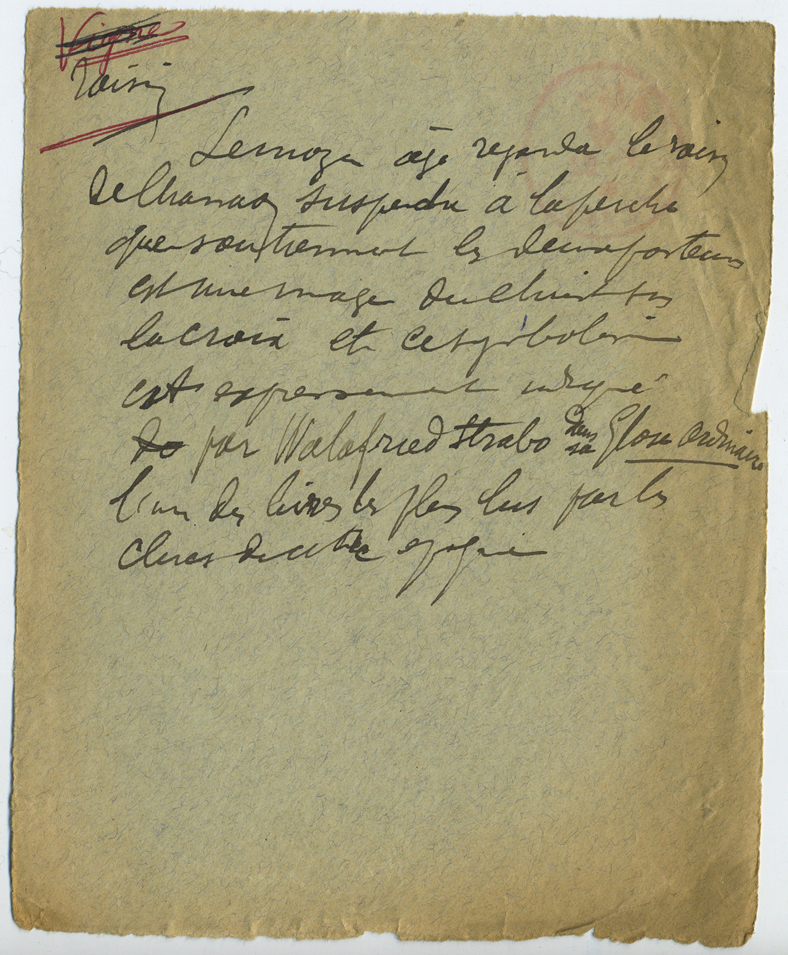 Vigne
raisin
Le moyen âge regarda le raisin
de Chanaan suspendu à la perche
que soutiennent les deux porteurs
est une image du Christ sur
la croix et ce symbolisme
est expressement indiqué
de par Walafried Strabo dans sa Glose Ordinaire
l'un des livres les plus lus par les
clercs de cette epoque